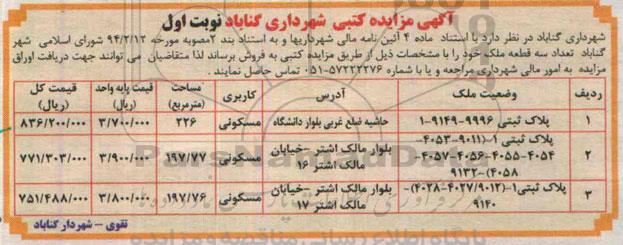 آگهی مزایده کتبی شهرداری گناباد نوبت اول
شهرداری گناباد در نظر دارد با استناد ماده ۴ آئین نامه مالی شهرداریها و به استناد بند ۲ مصوبه مورخه ۹۴/۲/۱۲ شورای اسلامی شهر
گناباد تعداد سه قطعه ملک خود را با مشخصات ذیل از طریق مزایده کتبی به فروش برساند لذا متقاضیان می توانند جهت دریافت اوراق
مزایده به امور مالی شهرداری مراجعه و یا با شماره ۵۷۲۲۲۲۷۶-۰۵۱ تماس حاصل نمایند .
ردیف وضعیت ملک آدرس کاربری مساحت (مترمربع) قیمت پایه واحد (ریال) قیمت کل (ریال)
۱ پلاک ثبتی ۹۹۹۶-۹۱۴۹-۱ حاشیه ضلع غربی بلوار دانشگاه مسکونی ۲۲۶ ۳/۷۰۰/۰۰۰ ۸۳۶/۲۰۰/۰۰۰
۲ پلاک ثبتی ۱-(۹۰۱۱-۴۰۵۳-
۴۰۵۴-۴۰۵۵-۴۰۵۶-۴۰۵۷-
۴۰۵۸)-۹۱۳۲ بلوار مالک اشتر -خیابان
مالک اشتر ۱۶ مسکونی ۱۹۷/۷۷ ۳/۹۰۰/۰۰۰ ۷۷۱/۳۰۳/۰۰۰
۳ پلاک ثبتی۱-(۹۰۱۲/۴۰۲۷-۴۰۲۸)-
۹۱۴۰ بلوار مالک اشتر -خیابان
مالک اشتر ۱۷ مسکونی ۱۹۷/۷۶ ۳/۸۰۰/۰۰۰ ۷۵۱/۴۸۸/۰۰۰
تقوی - شهردار گناباد
ParsNamadData
پایگاه اطلاع رسانی مناقصه و مزایده